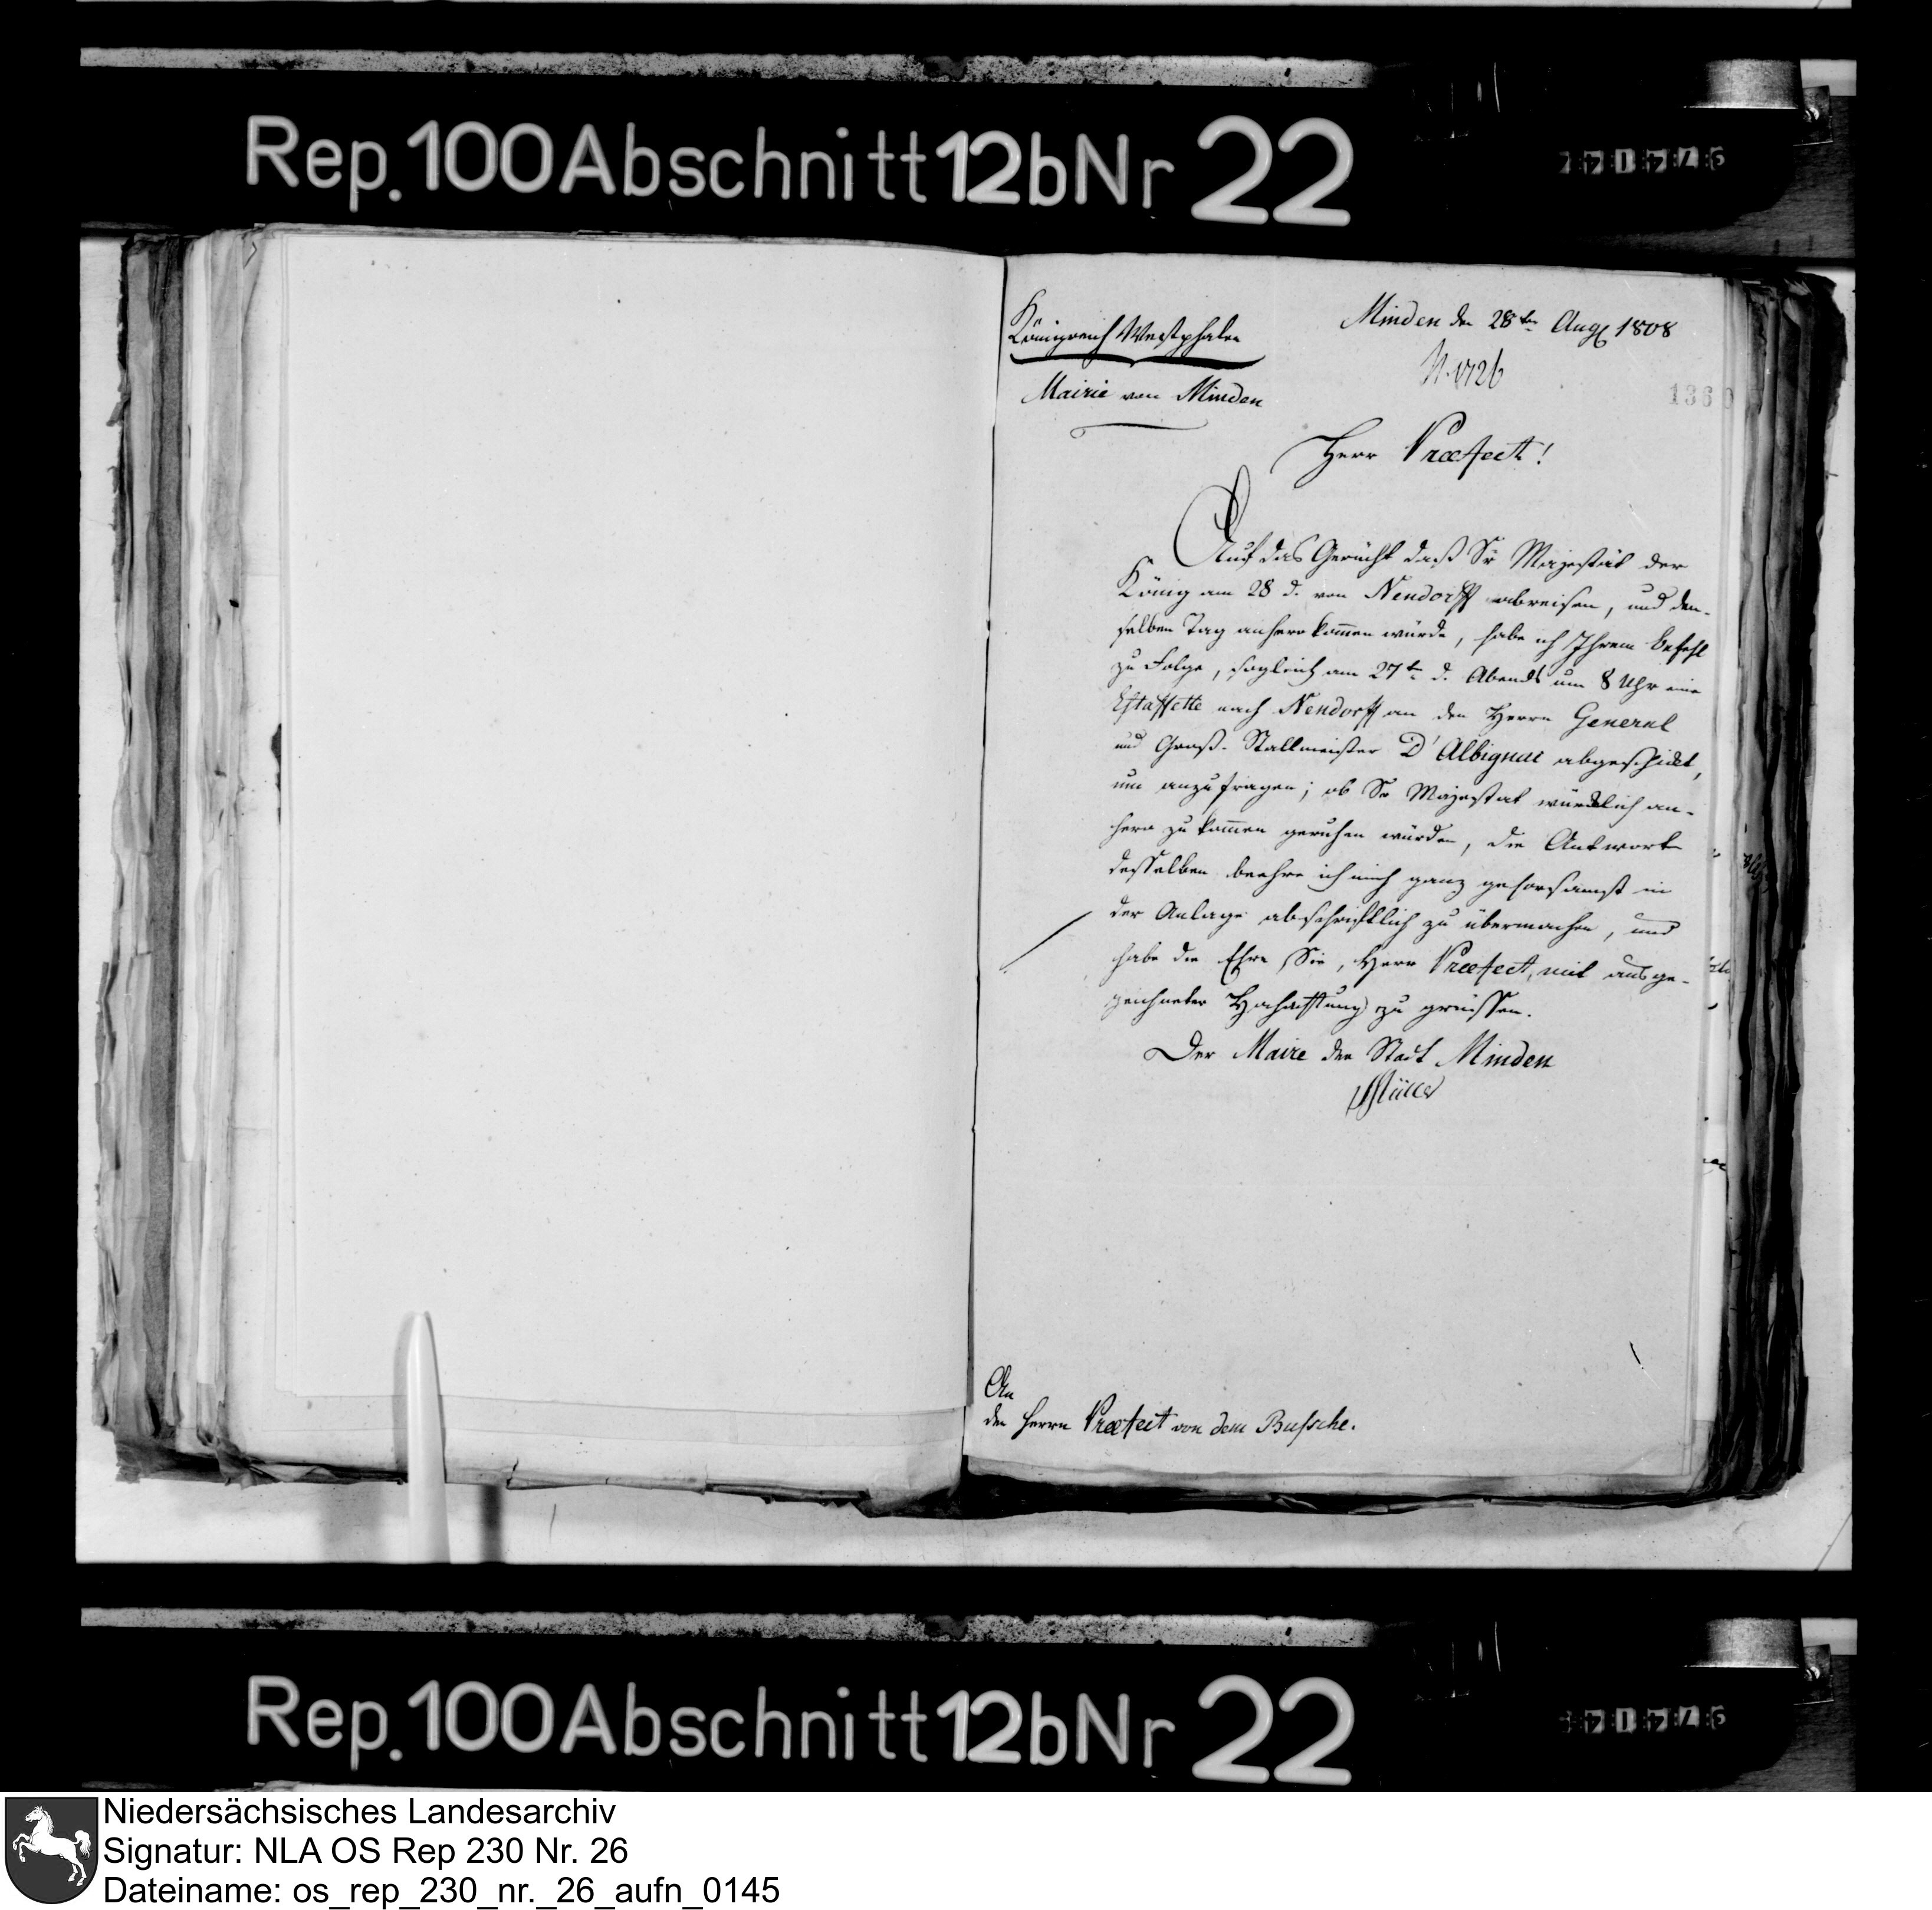 Rep. 100 Abschnitt 12b Nr 22
Königreich Westphalen
Mairie von Minden
Minden den 28ten Aug 1808
N. 1726
136
Herr Præfect!
Auf das Gerücht daß Sr Majestät der
König am 28 d. von Nendorff abreisen, und den-
selben Tag anhero kom̄en würde, habe ich Ihrem Befehl
zu Folge, sogleich am 27t d. Abends um 8 Uhr eine
Estaffette nach Nendorff an den Herrn General
und Groß-Stallmeister D'Albignac abgeschickt,
um anzufragen; ob Sr Majestät würklich an-
hero zu kom̄en geruhen würden, die Antwort
desselben beehre ich mich ganz gehorsamst in
der Anlage abschriftlich zu übermachen, und
habe die Ehre Sie, Herr Præfect, mit ausge-
zeichneter Hochachtung zu grüssen.
Der Maire der Stadt Minden
Müller
An
den Herrn Præfect von dem Bussche.
Rep. 100 Abschnitt 12b Nr 22
Niedersächsisches Landesarchiv
Signatur: NLA OS Rep 230 Nr. 26
Dateiname: os_rep_230_nr._26_aufn_0145